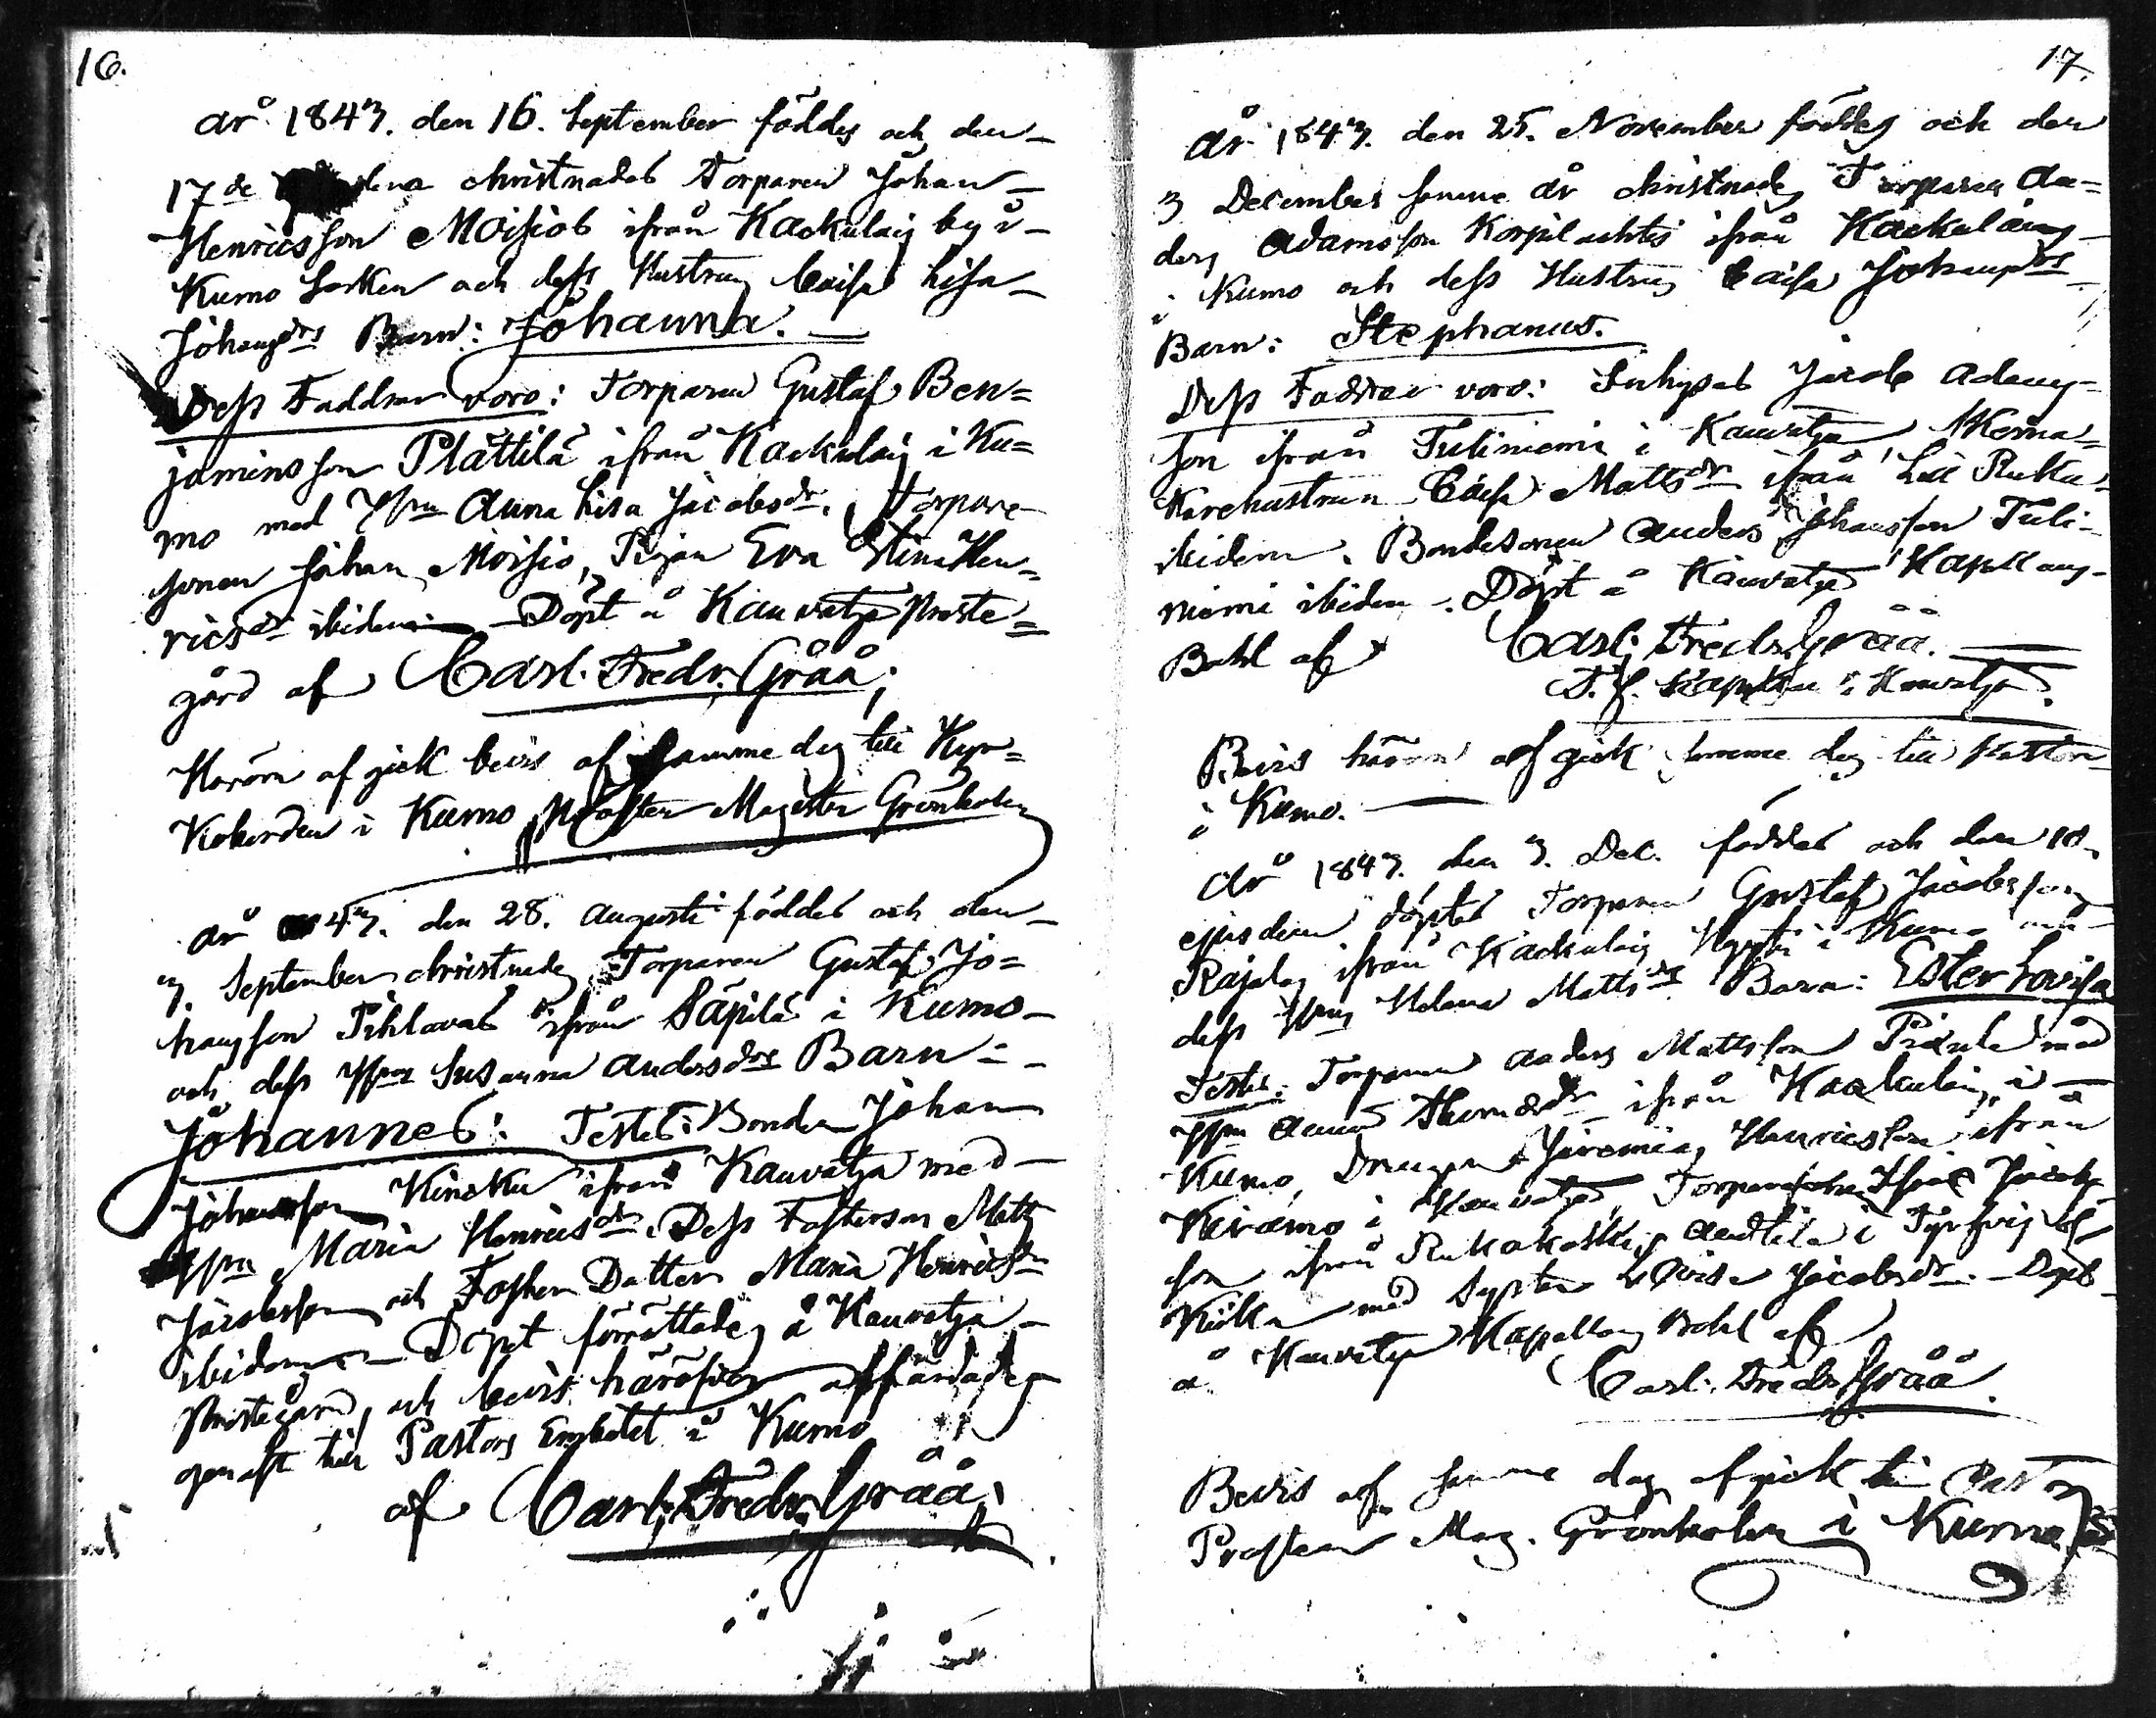 16.
år 1847. den 16. September föddes och den
17de christnades Torparen Johan
Henricsson Moisios ifrån Kackulais by i
Kumo Socken och dess Hustrus Caisa Lisa
Johansdrs Barn: Johanna.
Dess Faddrar voro: Torparen Gustaf Ben=
jaminsson Plättilä ifrån Kackulais i Ku=
mo med Hstru Anna Lisa Jacobsdr, Torpare
sonen Johan Moisio, Pigan Eva Stina Hen=
ricsdr ibidem. Döpt å Kauvatsa Preste=
gård af Carl. Fredr. Gråå;
Häröm af gick bevis af samme dag till Kyr=
koherden i Kumo Prosten Magister Grönholm
år 47. den 28. Augusti föddes och den
7. September christnades Torparen Gustaf Jo=
hansson Pihlavas ifrån Säpilä i Kumo
och dess Hstrus Susanna Andersdrs Barn:
Johannes: Testes: Bonden Johan
Johansson Kinsku ifrån Kauvatsa med
Hstru Maria Henricsdr. Dess Fosterson Matts
Jacobsson och Foster Dotter Maria Henricsdr
ibidem. Döpt förrättades å Kauvatsa
Prestegård, och bevis häröfver affärdades
genast till Pastors Embetet i Kumo
af Carl. Fredr. Gråå;
17.
År 1847. den 25. November föddes och den
3 December samme år christnades Torparen An=
ders Adamsson Korpilachtis ifrån Kackulais
i Kumo och dess Hustrus Caisa Johansdrs
Barn: Stephanus.
Dess Faddrar voro: Inhyses Jacob Adams=
son ifrån Tuliniemi i Kauvatsa,
hustrun Caisa Mattsdr ifrån
ibidem. Bondesonen Anders Johansson Tuli=
niemi ibidem. Döpt å Kauvatsa Kapellans
Bohl af Carl. Fredr. Gråå.
T. f. Kapellan i Kauvatsa.
Bevis härom af gick samme dag till Pastorn
i Kumo.
År 1847. den 3. Dec. föddes och den 10.
ejusdem döptes Torparen Gustaf Jacobssons
Rajalas ifrån Kackulais i Kumo och
dess Hstrus Helena Mattsdrs Barn: Ester Lovisa
Testes: Torparen Anders Mattsson med
Hstru Anna Thomasdr ifrån Kackulais i
Kumo, Drengen Jeremias Henricsson ifrån
i Kauvatsa, Torparesonen Isac Jacobs=
son ifrån i Tyrfvis
med Syster Lovisa Jacobsdr. Döpt
å Kauvatsa Kapellans Bohl af
Carl. Fredr. Gråå.
Bevis af samme dag afgick till
Prosten Mag. Grönholm i Kumo